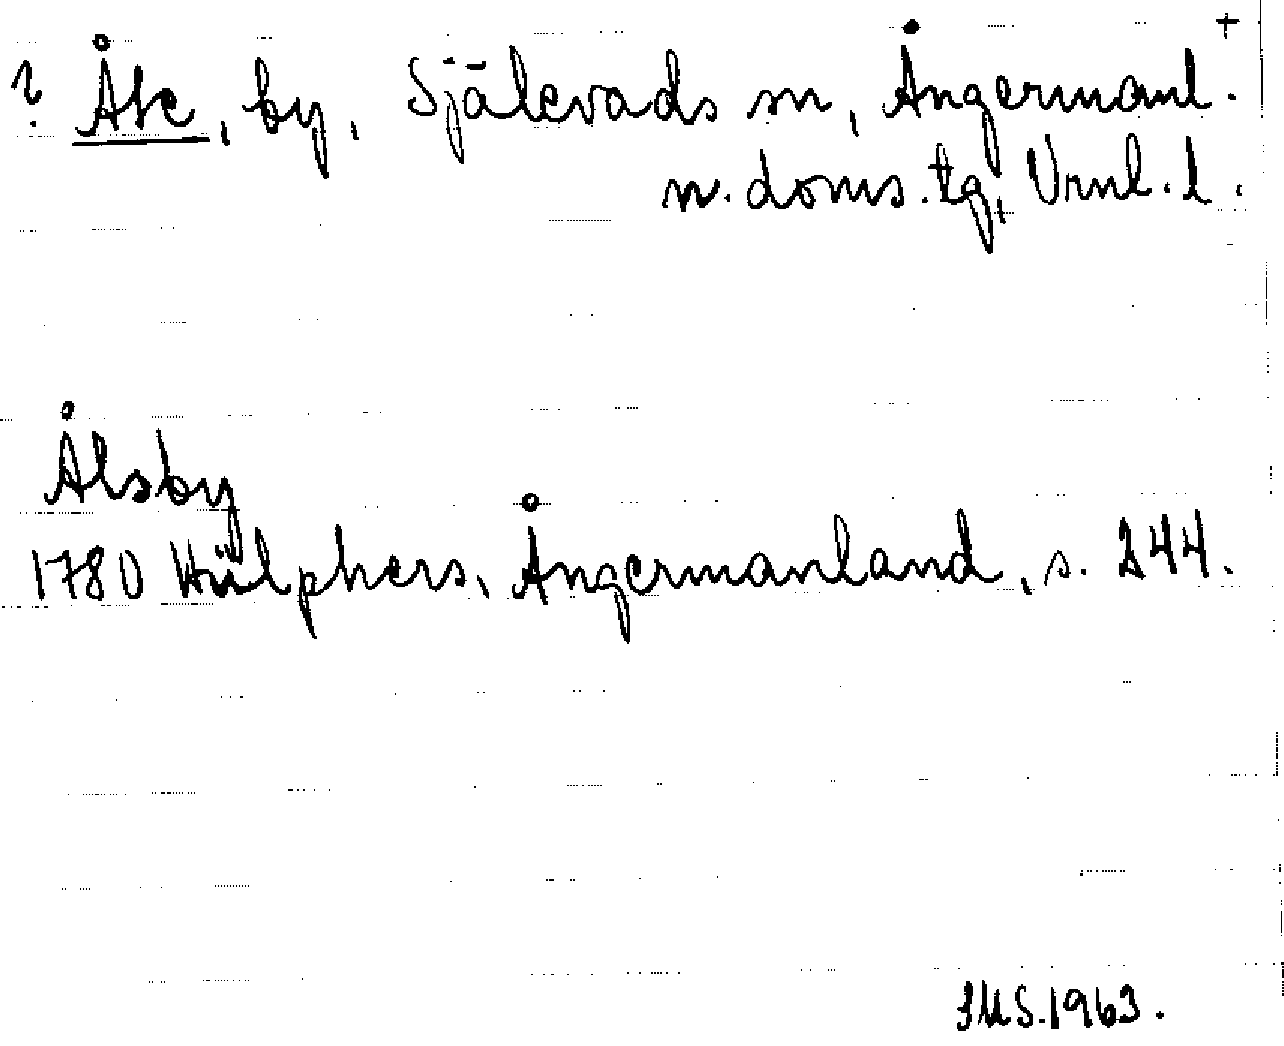 ? Åbe, by, Själevads sn, Ångermanl. +
n. doms. tg, Vrnl. l.
Ålsby
1780 Hülphers, Ångermanland, s. 244.
IMS. 1963.